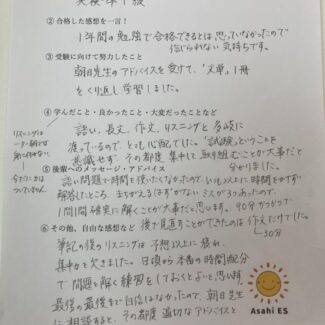 英検準1級
②合格した感想を一言!
1年間の勉強で合格できるとは思っていなかったので
信じられない気持ちです。
③受験に向けて努力したこと
朝日先生のアドバイスを受けて、「文単」1冊
をくり返し学習しました。
④学んだこと・良かったこと・大変だったことなど
リスニングは
語い、長文、作文、リスニングと多岐に
渡っているので、とても心配でした。「試験」ということを
意識せず、その都度集中して取り組むことが大事だと
分かりました。
⑤後輩へのメッセージ・アドバイス
語い問題で時間を使いたくなかったので
解答したところ、まちがえるはずがないミスが3つあったので、
1問1問確実に解くことが大事だと思います。90分かかって
後で見直すことができたのは作文だけでした。
30分
⑥その他、自由な感想など
筆記の後のリスニングは予想以上に疲れ、
集中を欠きました。日頃から本番の時間配分
で問題を解く練習をしておくとよいと思います
最後の最後まで自信はなかったので、朝日先生
に相談すると、その都度適切なアドバイスと
Asahi ES